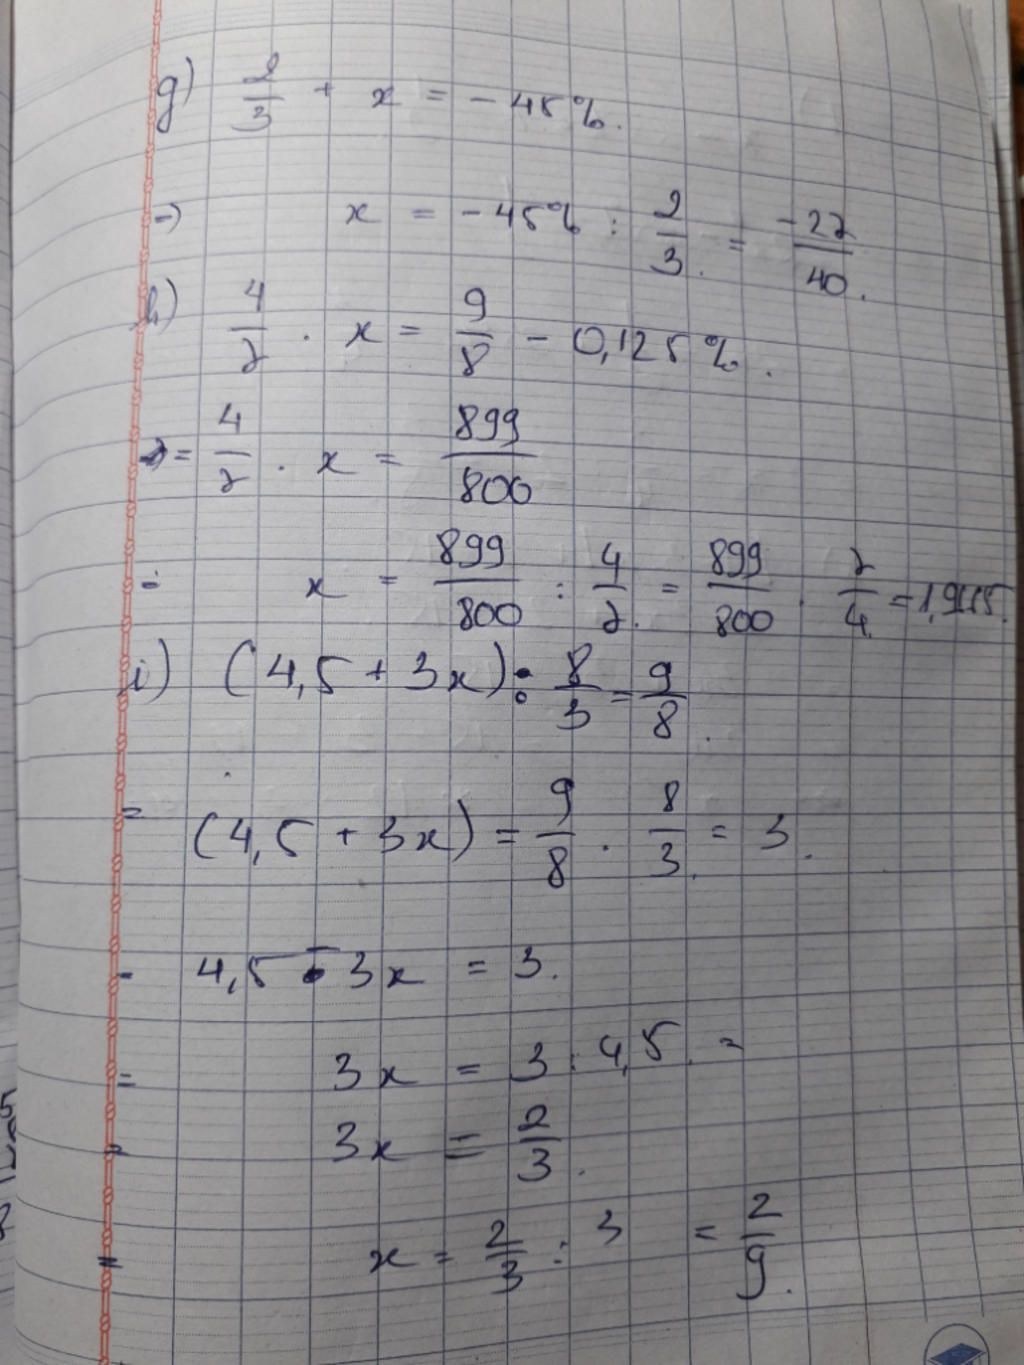 g) 2/3 + x = - 45%.
=) x = - 45% : 2/3. = -27/40.
h) 4/7 . x = 9/8 - 0,125%.
= 4/7 . x = 899/800
= x = 899/800 : 4/7. = 899/800 . 7/4.
i) (4,5 + 3x) : 8/3 = 9/8.
= (4,5 + 3x) = 9/8 . 8/3. = 3.
= 4,5 3x = 3.
= 3x = 3 : 4,5. =
= 3x = 2/3.
= x = 2/3 : 3 = 2/9.